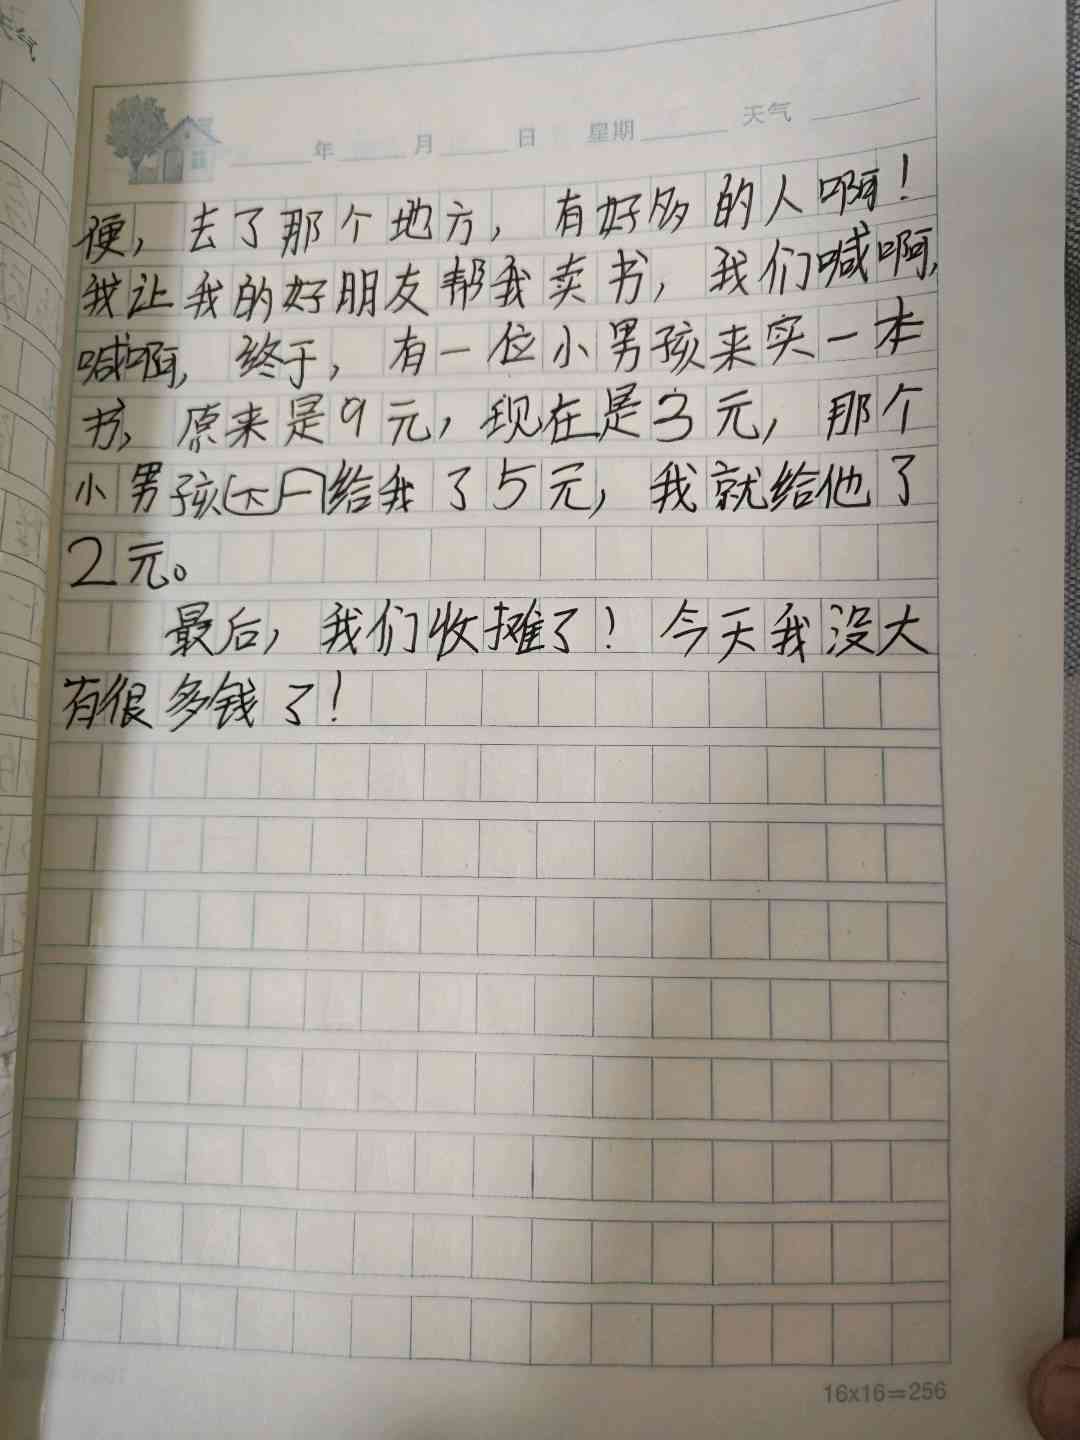 天气
年 月 日 星期 天气
便，去了那个地方，有好多的人啊！
我让我的好朋友帮我卖书，我们喊啊，
喊啊，终于，有一位小男孩来买一本
书，原来是9元，现在是3元，那个
小男孩给我了5元，我就给他了
2元。
最后，我们收摊了！今天我没大
有很多钱了！
16x16=256